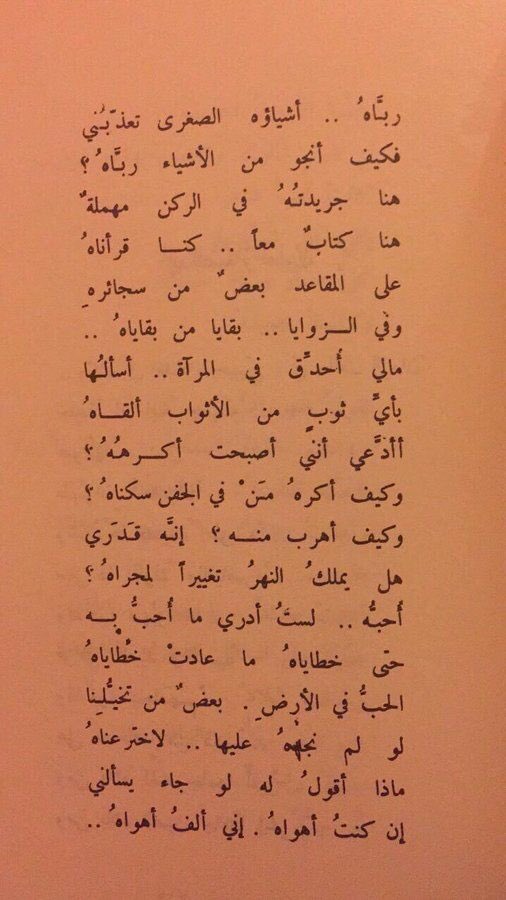 ربَّاهُ .. أشياؤه الصغرى تعذّبُني
فكيف أنجو من الأشياء ربَّاهُ ؟
هنا جريدتُهُ في الركن مهملةٌ
هنا كتابٌ معاً .. كنا قرأناهُ
على المقاعد بعضٌ من سجائرهِ
وفي الزوايا .. بقايا من بقاياهُ ..
مالي أُحدِّق في المرآة .. أسألُها
بأيِّ ثوبٍ من الأثواب ألقاهُ
أأدَّعي أنني أصبحت أكرهُهُ ؟
وكيف أكرهُ مَنْ في الجفن سكناهُ ؟
وكيف أهرب منه ؟ إنَّه قَدَري
هل يملكُ النهرُ تغييراً لمجراهُ ؟
أُحبُّه .. لستُ أدري ما أُحبُّ بِه
حتى خطاياهُ ما عادتْ خطاياهُ
الحبُّ في الأرضِ . بعضٌ من تخيُّلِنا
لو لم نجدهُ عليها .. لاخترعناهُ
ماذا أقولُ له لو جاء يسألني
إن كنتُ أهواهُ . إني ألفُ أهواهُ ..